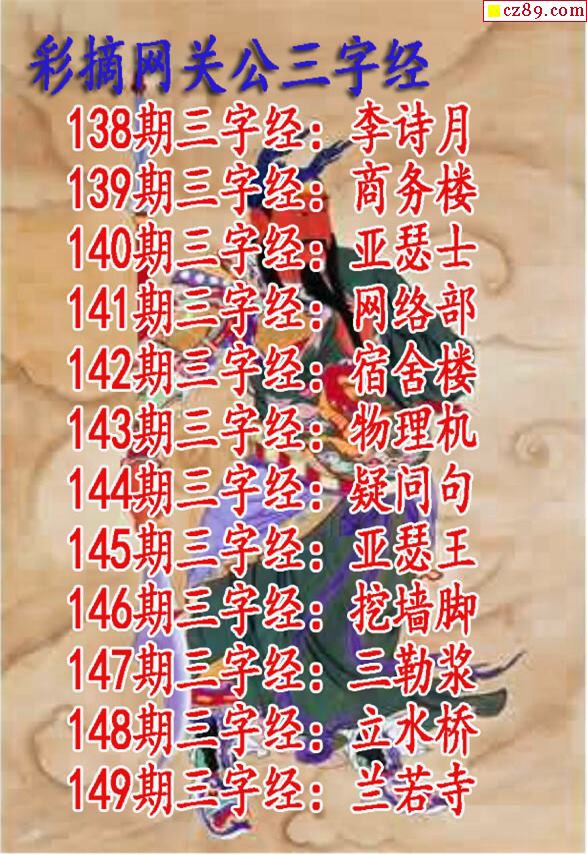 cz89.com
彩摘网关公三字经
138期三字经：李诗月
139期三字经：商务楼
140期三字经：亚瑟士
141期三字经：网络部
142期三字经：宿舍楼
143期三字经：物理机
144期三字经：疑问句
145期三字经：亚瑟王
146期三字经：挖墙脚
147期三字经：三勒浆
148期三字经：立水桥
149期三字经：兰若寺